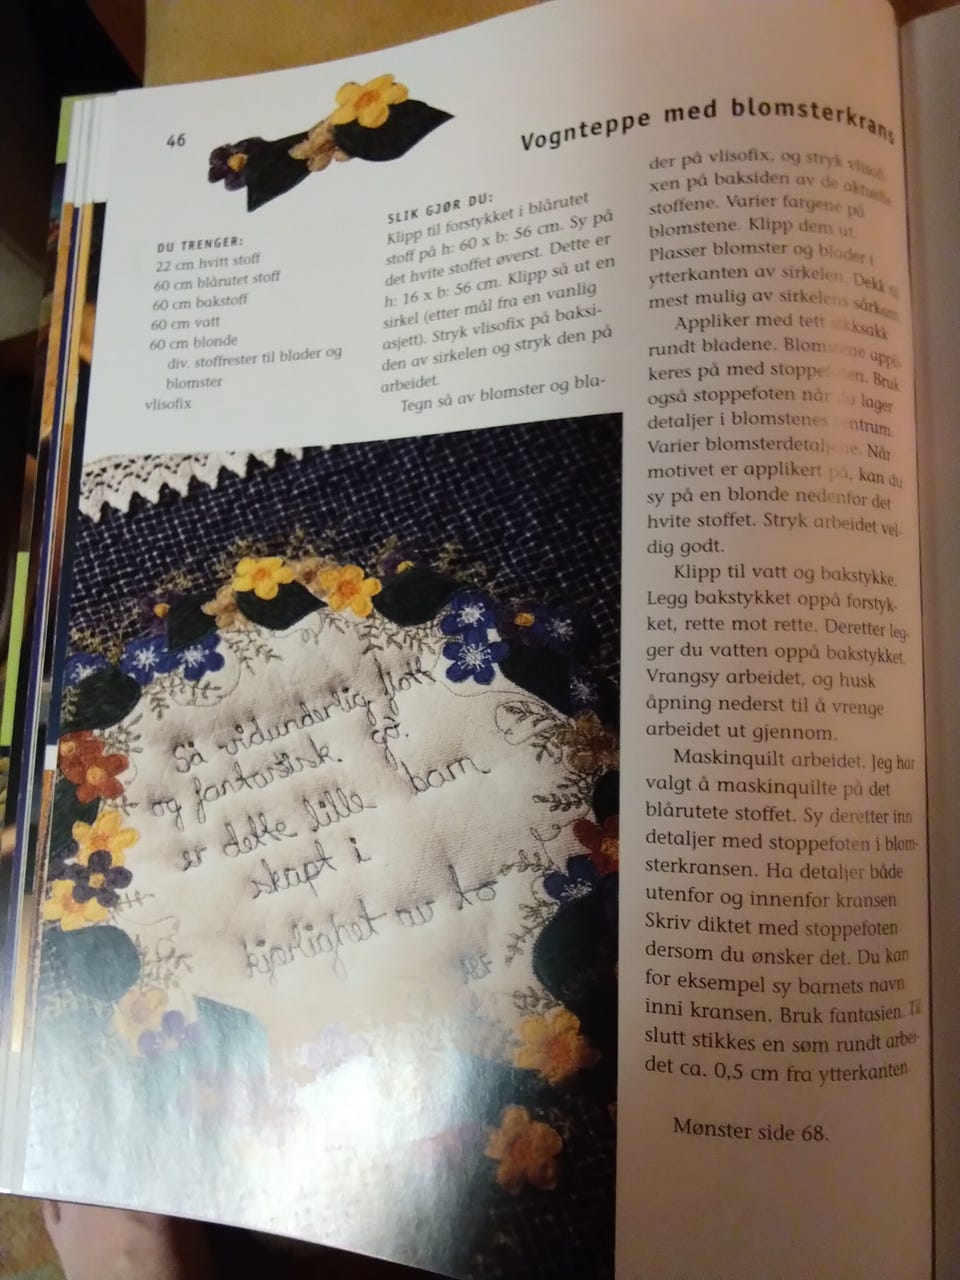 46
Vognteppe med blomsterkrans
DU TRENGER:
22 cm hvitt stoff
60 cm blårutet stoff
60 cm bakstoff
60 cm vatt
60 cm blonde
div. stoffrester til blader og
blomster
vlisofix
SLIK GJØR DU:
Klipp til forstykket i blårutet
stoff på h: 60 x b: 56 cm. Sy på
det hvite stoffet øverst. Dette er
h: 16 x b: 56 cm. Klipp så ut en
sirkel (etter mål fra en vanlig
asjett). Stryk vlisofix på baksi-
den av sirkelen og stryk den på
arbeidet.
Tegn så av blomster og bla-
der på vlisofix, og stryk vlisofi-
xen på baksiden av de aktuelle
stoffene. Varier fargene på
blomstene. Klipp dem ut.
Plasser blomster og blader i
ytterkanten av sirkelen. Dekk
mest mulig av sirkelens
Appliker med tett sikksakk
rundt bladene. Blomstene appli-
keres på med stoppefoten. Bruk
også stoppefoten når du lager
detaljer i blomstenes sentrum.
Varier blomsterdetaljene. Når
motivet er applikert på, kan du
sy på en blonde nedenfor det
hvite stoffet. Stryk arbeidet vel-
dig godt.
Klipp til vatt og bakstykke.
Legg bakstykket oppå forstyk-
ket, rette mot rette. Deretter leg-
ger du vatten oppå bakstykket.
Vrangsy arbeidet, og husk
åpning nederst til å vrenge
arbeidet ut gjennom.
Maskinquilt arbeidet. Jeg har
valgt å maskinquilte på det
blårutete stoffet. Sy deretter inn
detaljer med stoppefoten i blom-
sterkransen. Ha detaljer både
utenfor og innenfor kransen
Skriv diktet med stoppefoten
dersom du ønsker det. Du kan
for eksempel sy barnets navn
inni kransen. Bruk fantasien. Til
slutt stikkes en søm rundt arbei-
det ca. 0,5 cm fra ytterkanten.
Mønster side 68.
Så vidunderlig flott
og fantastisk go.
er dette lille barn
skapt i
kjærlighet av to